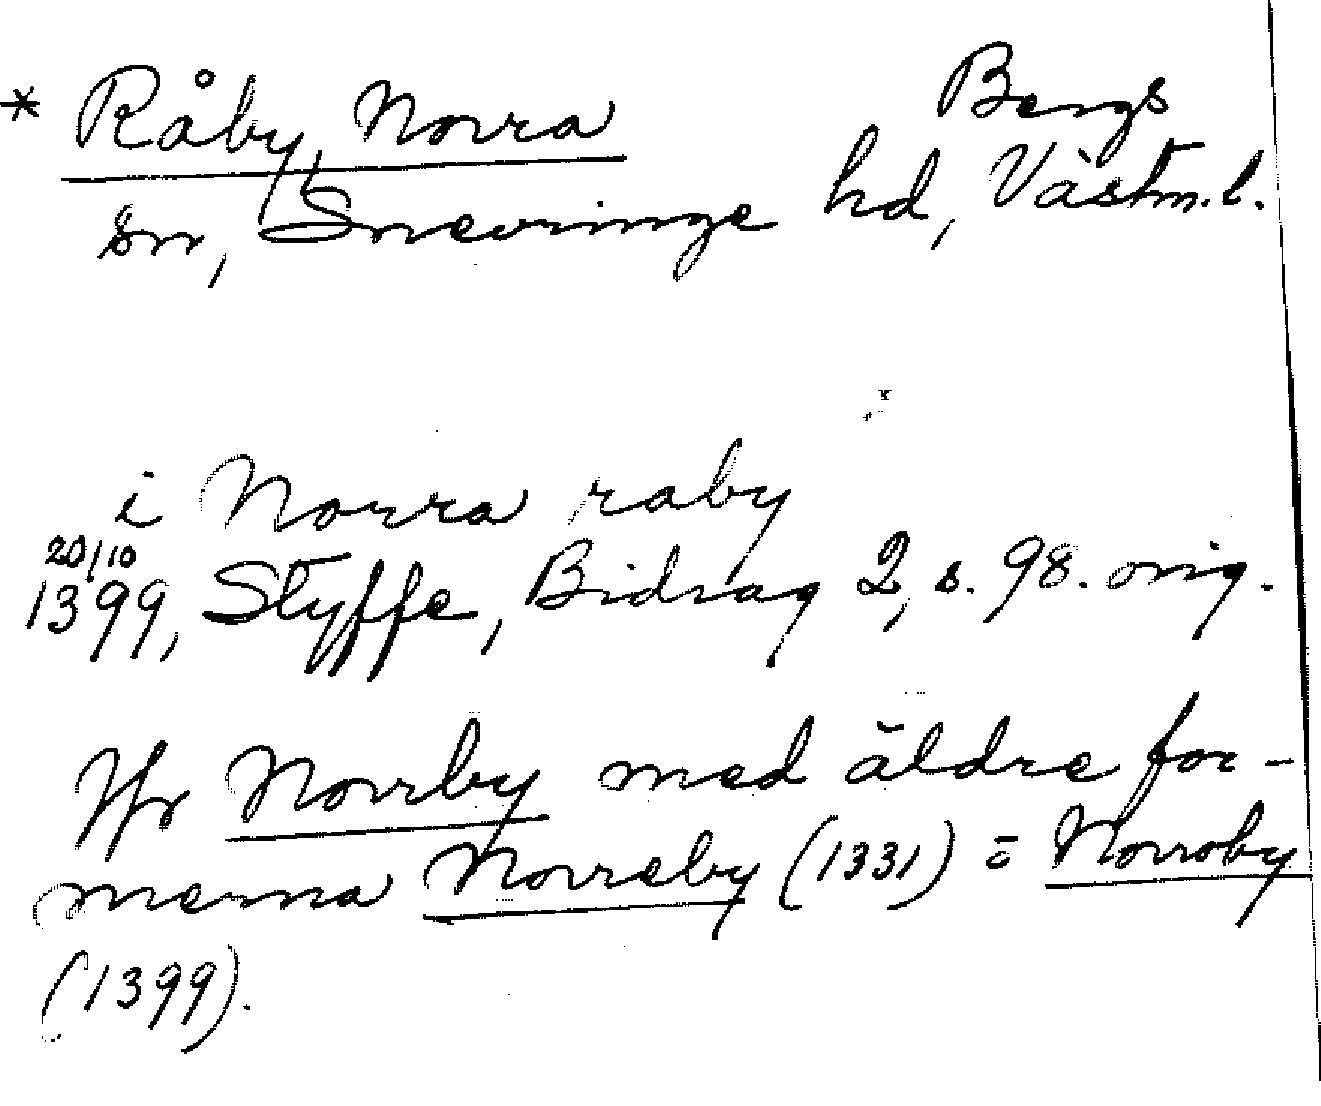 * Råby, Norra Bergs
sn, Snevringe hd, Västm.l.
i Norra raby
20/10
1399, Styffe, Bidrag 2, s. 98. orig.
Jfr Norrby med äldre for-
merna Norreby (1331) o Norroby
(1399).